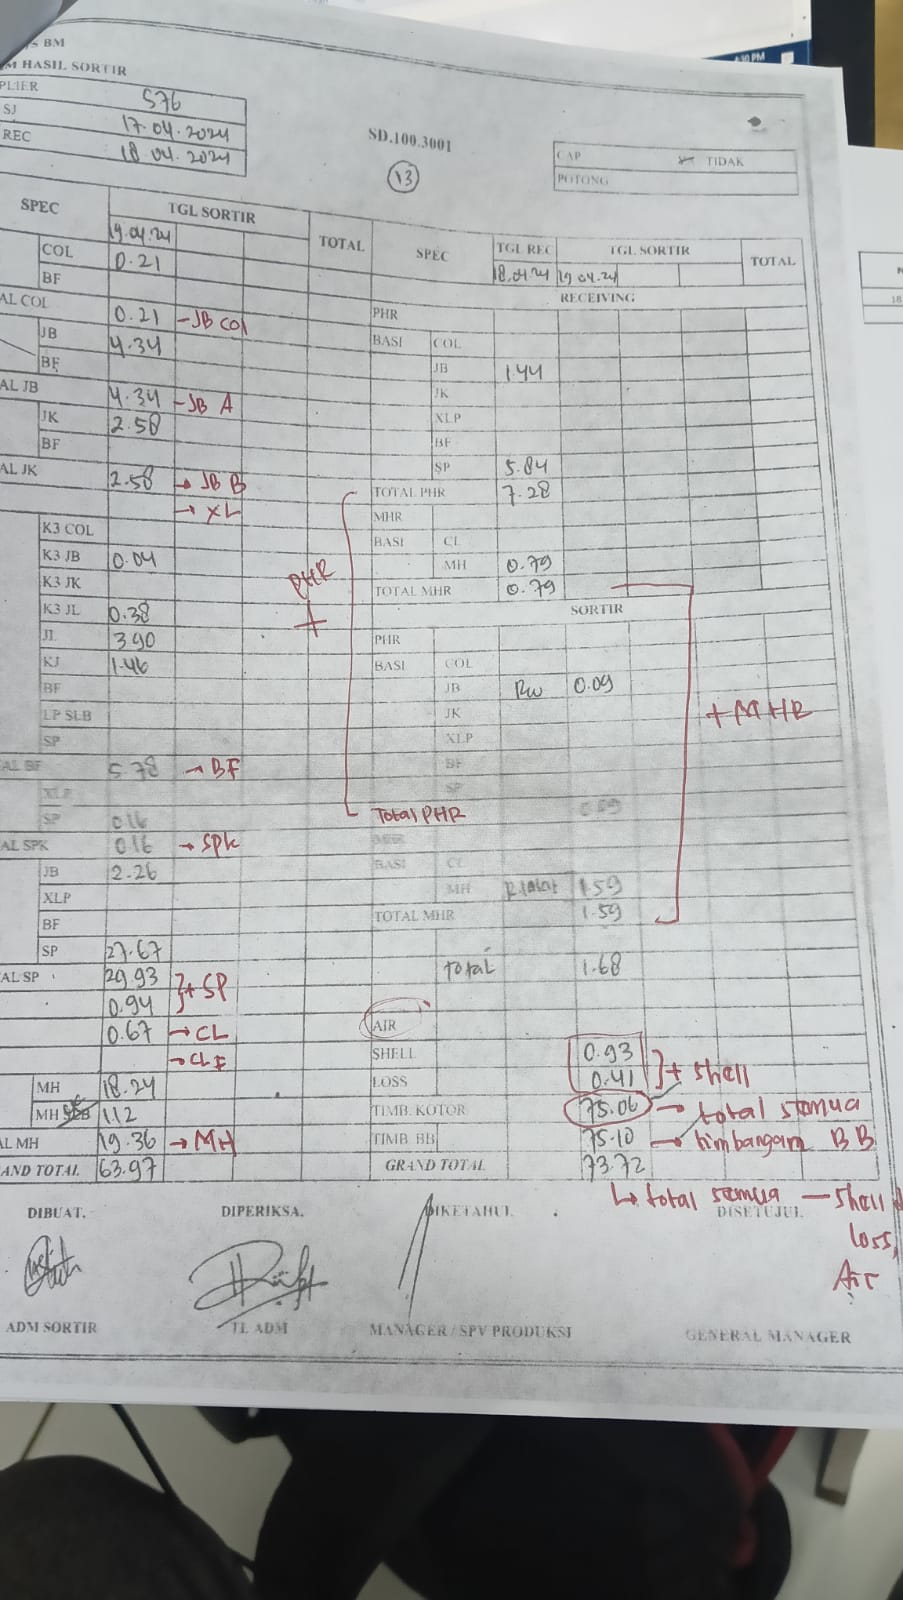 BM
HASIL SORTIR
PLIER 576
SJ 17.04.2024
REC 18.04.2024
SD.100.3001
13
CAP TIDAK
POTONG
SPEC TGL SORTIR TOTAL
19.04.24
COL 0.21
BF
AL COL 0.21 - JB COL
JB 4.34
BF
AL JB 4.34 - JB A
JK 2.58
BF
AL JK 2.58 → JB B
→ XL
K3 COL
K3 JB 0.04
K3 JK
K3 JL 0.38
JL 3.90
KJ 1.46
BF
LP SLB
SP
AL BF 5.78 → BF
XLP
SP 0.16
AL SPK 0.16 → SPK
JB 2.26
XLP
BF
SP 27.67
AL SP 29.93
0.94 } + SP
0.67 → CL
→ CLF
MH 18.24
MH 1.12
AL MH 19.36 → MH
AND TOTAL 63.97
SPEC TGL REC TGL SORTIR TOTAL
18.04.24 19.04.24
RECEIVING
PHR
BASI COL
JB 1.44
JK
XLP
BF
SP 5.84
TOTAL PHR 7.28
MHR
BASI CL
MH 0.79
TOTAL MHR 0.79
PHR +
SORTIR
PHR
BASI COL
JB RW 0.09
JK
XLP
BF
SP
Total PHR 0.09
+ MHR
BASI CL
MH 1.59
TOTAL MHR 1.59
Total 1.68
AIR
SHELL 0.93
LOSS 0.41 } + shell
TIMB. KOTOR 75.06 → total semua
TIMB BB 75.10 → timbangam BB
GRAND TOTAL 73.72
↳ total semua — shell
loss,
Air
DIBUAT, DIPERIKSA, DIKETAHUI, DISETUJUI,
ADM SORTIR TL ADM MANAGER / SPV PRODUKSI GENERAL MANAGER